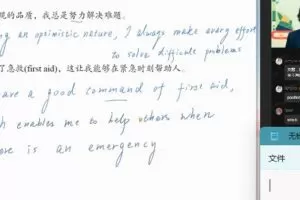 观的品质，我总是努力解决难题。
ng an optimistic nature, I always make every effort
to solve difficult problems
了急救(first aid)，这让我能够在紧急时刻帮助人。
ave a good command of first aid,
ch enables me to help others when
ere is an emergency
文件